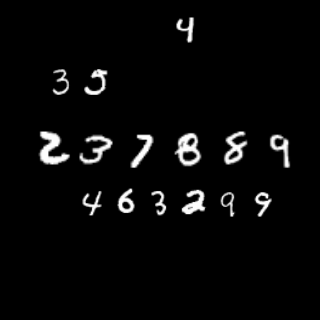 4
35
237889
463299